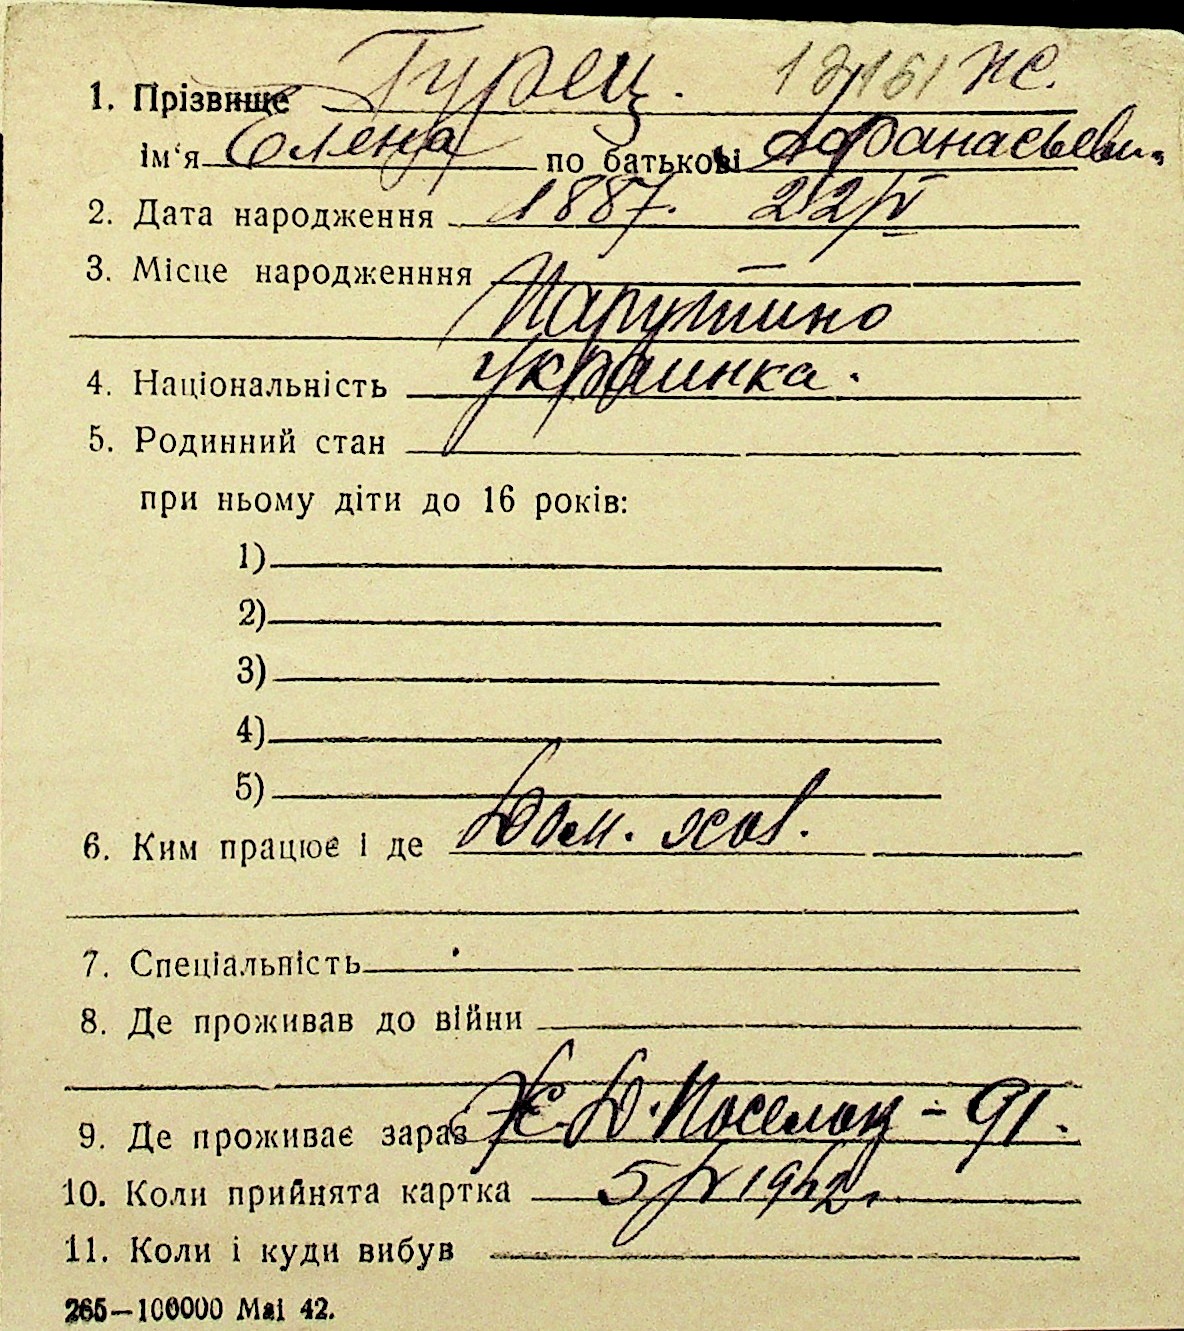 1. Прізвище Турец. 12161 Ж.
ім‘я Елена по батькові Афанасьевн.
2. Дата народження 1887. 22/V
3. Місце народженння
Парутино
4. Національність украинка.
5. Родинний стан
при ньому діти до 16 років:
1)
2)
3)
4)
5)
6. Ким працює і де Дом. хоз.
7. Спеціальність
8. Де проживав до війни
9. Де проживає зараз Ж. Д. Поселок - 91.
10. Коли прийнята картка 5/V 1942 г.
11. Коли і куди вибув
265—100000 Маі 42.